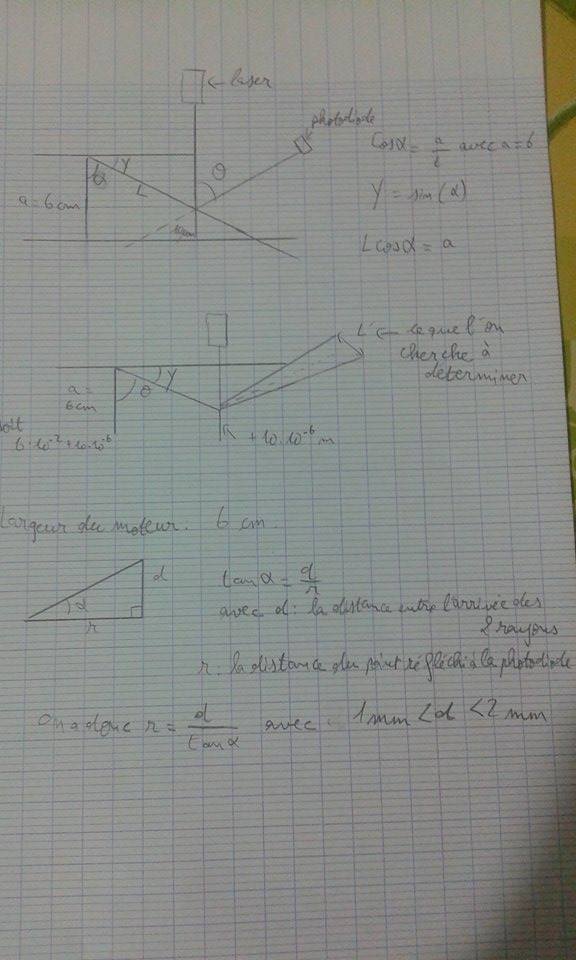 ← laser
photodiode
Cosα = a/L avec a = 6
γ
θ
α
L
a = 6 cm
γ = sin(α)
10μm
L cosα = a
L' ← ce que l'on
cherche à
determiner
a =
6cm
θ
γ
soit
6·10⁻²+10·10⁻⁶
+10·10⁻⁶ m
largeur du moteur. 6 cm.
d
α
r
tanα = d/r
avec d: la distance entre l'arrivée des
2 rayons
r. la distance du point réfléchi à la photodiode
On a donc r = d/tanα avec. 1mm < d < 2 mm